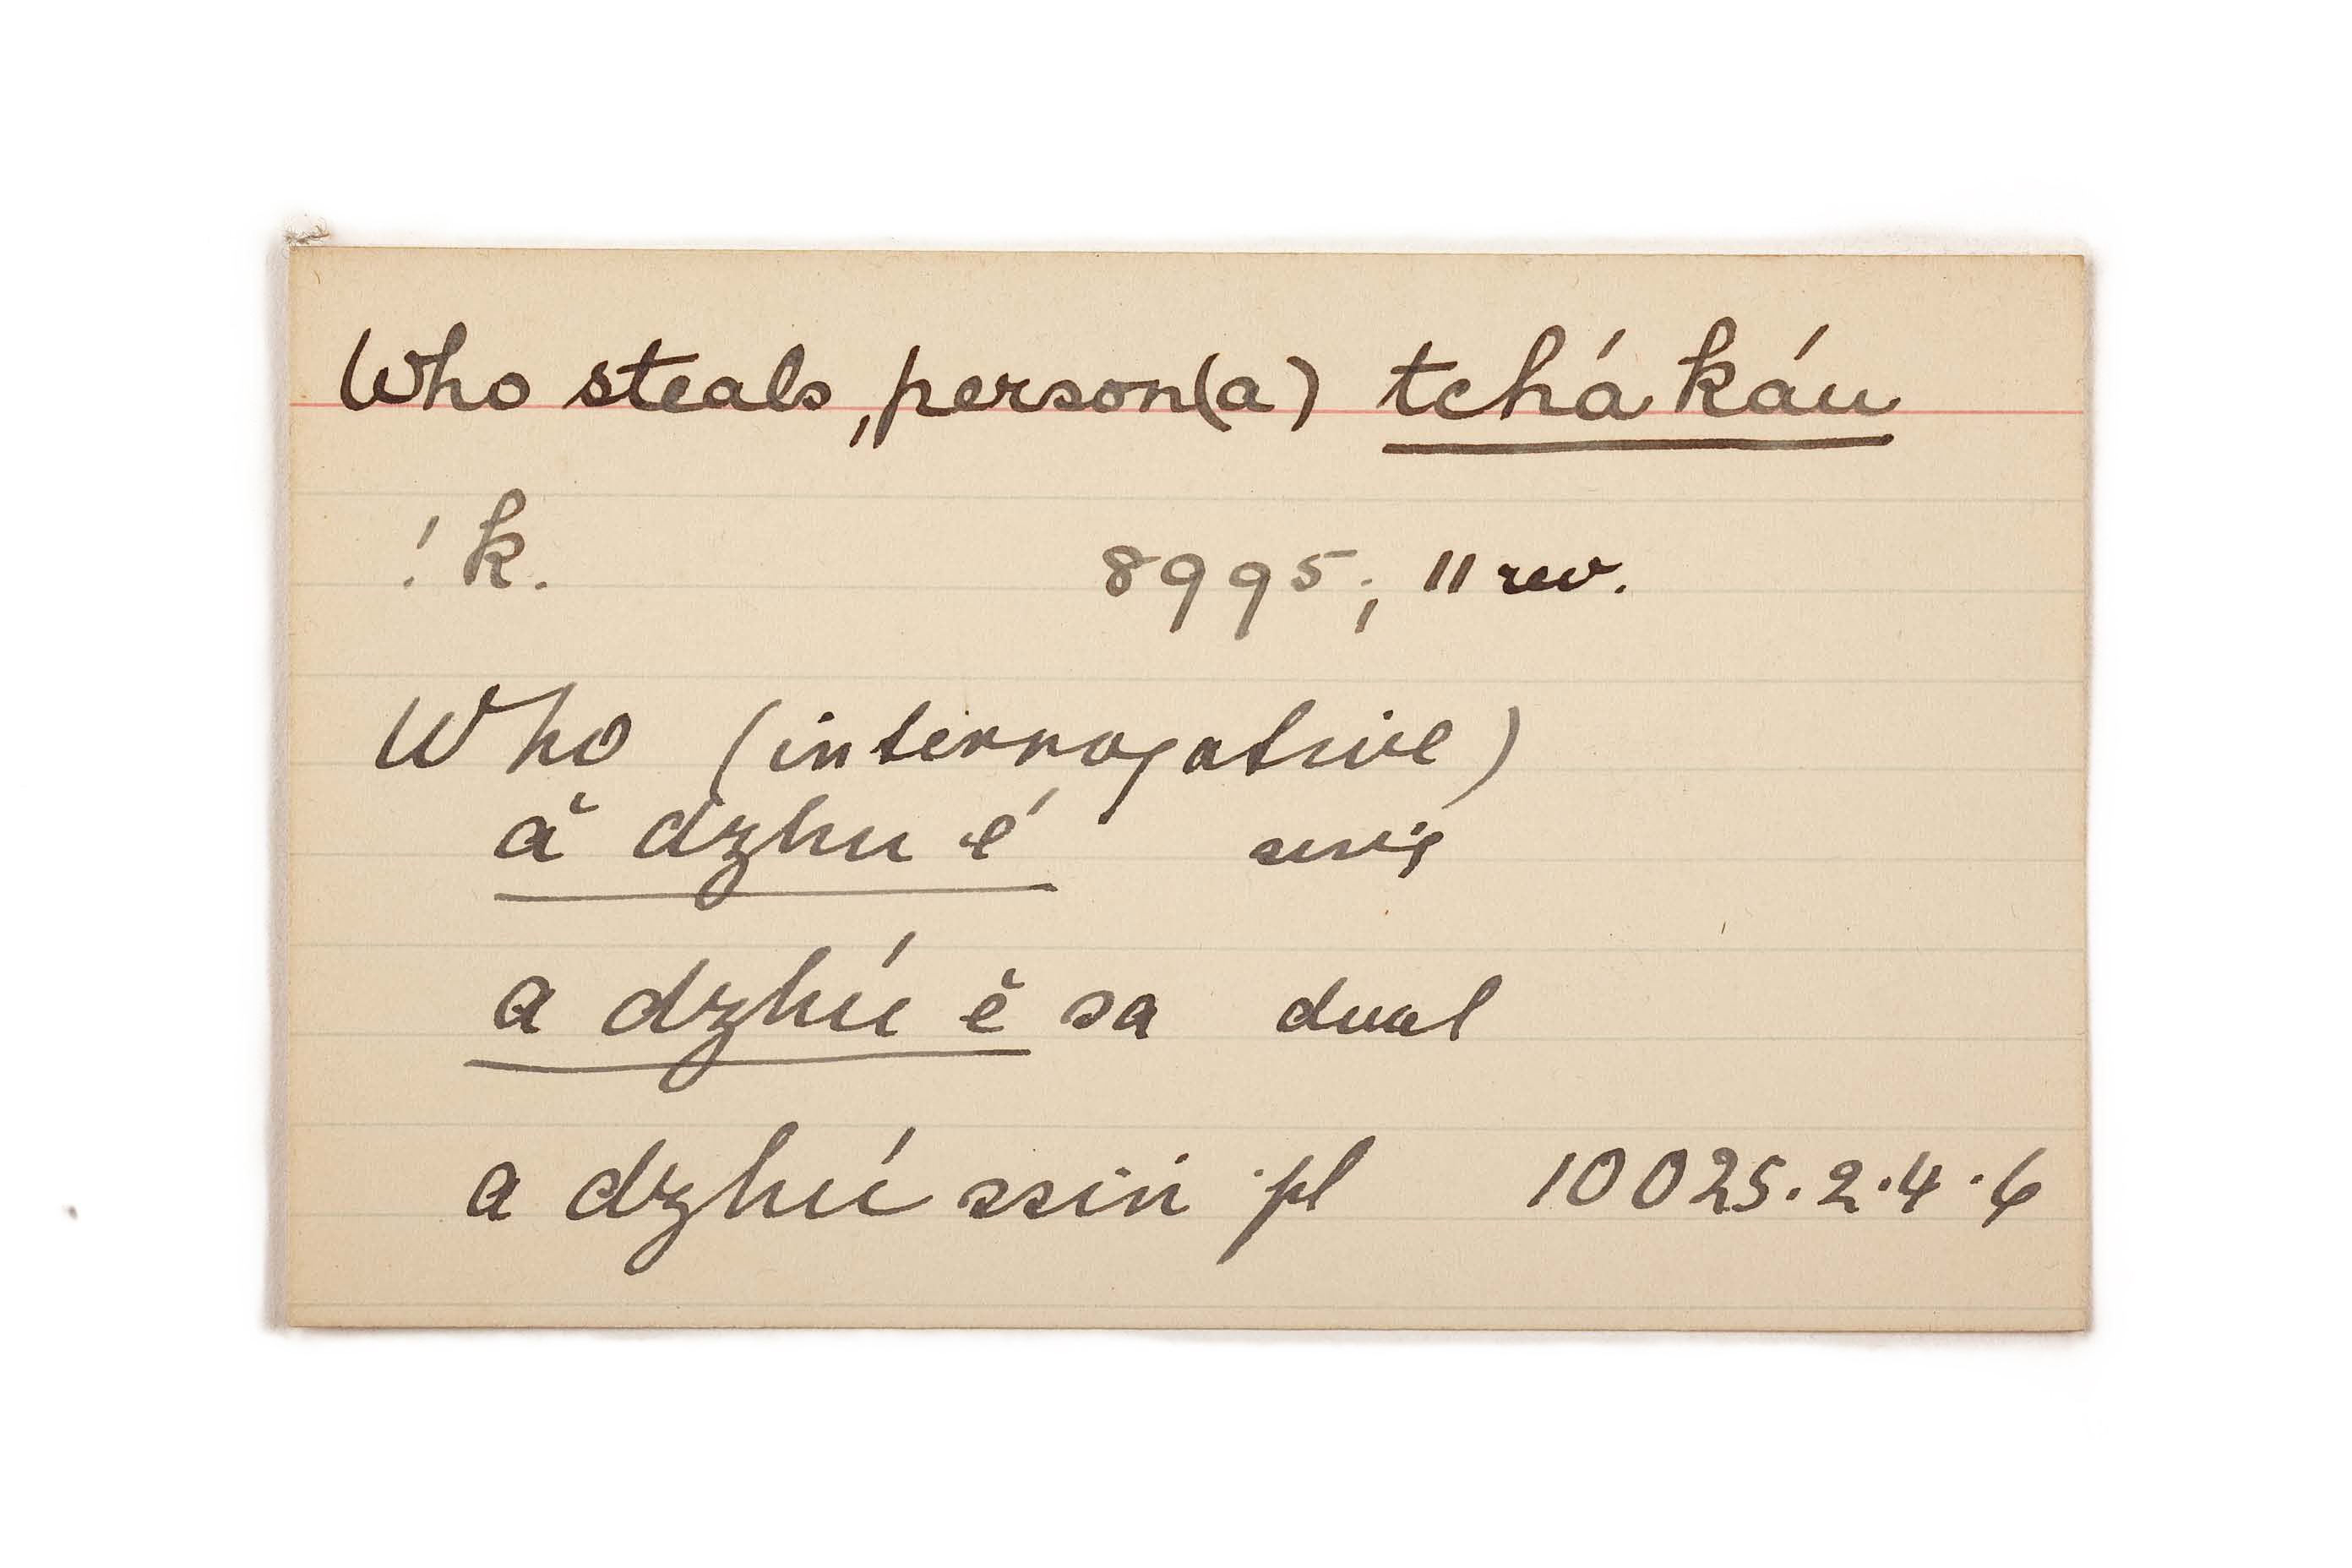 Who steals, person(a) tchá káu
!k. 8995; 11 rev.
Who (interrogative)
ă dzhu é sing
a dzhú ĕ sa dual
a dzhú ssin pl 10025.2.4.6